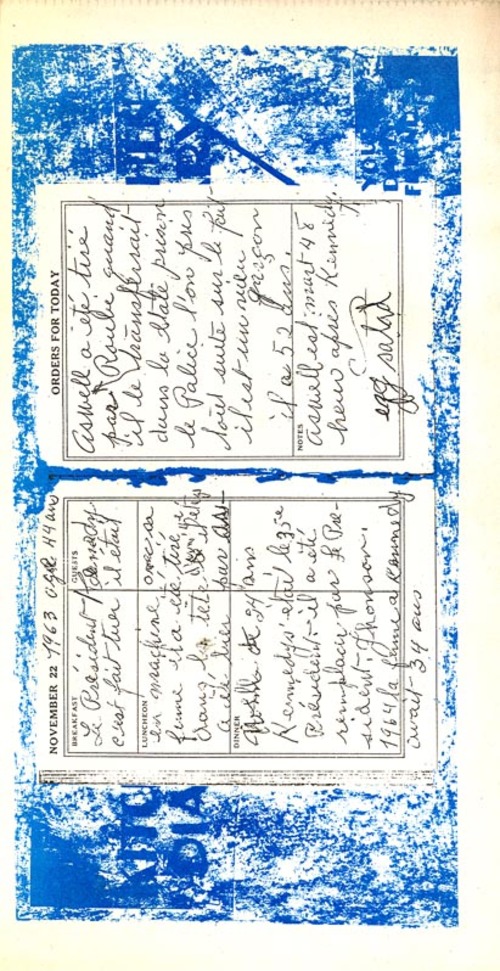 NOVEMBER 22 1963 agé 44 ans
BREAKFAST GUESTS
Le Président Kennedy.
c'est fait tuer il était
LUNCHEON
en machine, avec sa
femme il a été tiré
dans la tête
a été tuer par as-
DINNER
de 24 ans
Kennedys était le 35e
Président il a été
remplacer par le Pré-
sident, Jhonson.
1964 la femme a Kennedy
avait 34 ans
ORDERS FOR TODAY
aswell a été tiré
par Rubie quand
il le transferait
dans la state prison
le Police l'on pris
tout suite sur le fait
il est un vieu
garçon
il a 52 ans.
NOTES
aswell est mort 48
heur après Kennedy.
egg salad